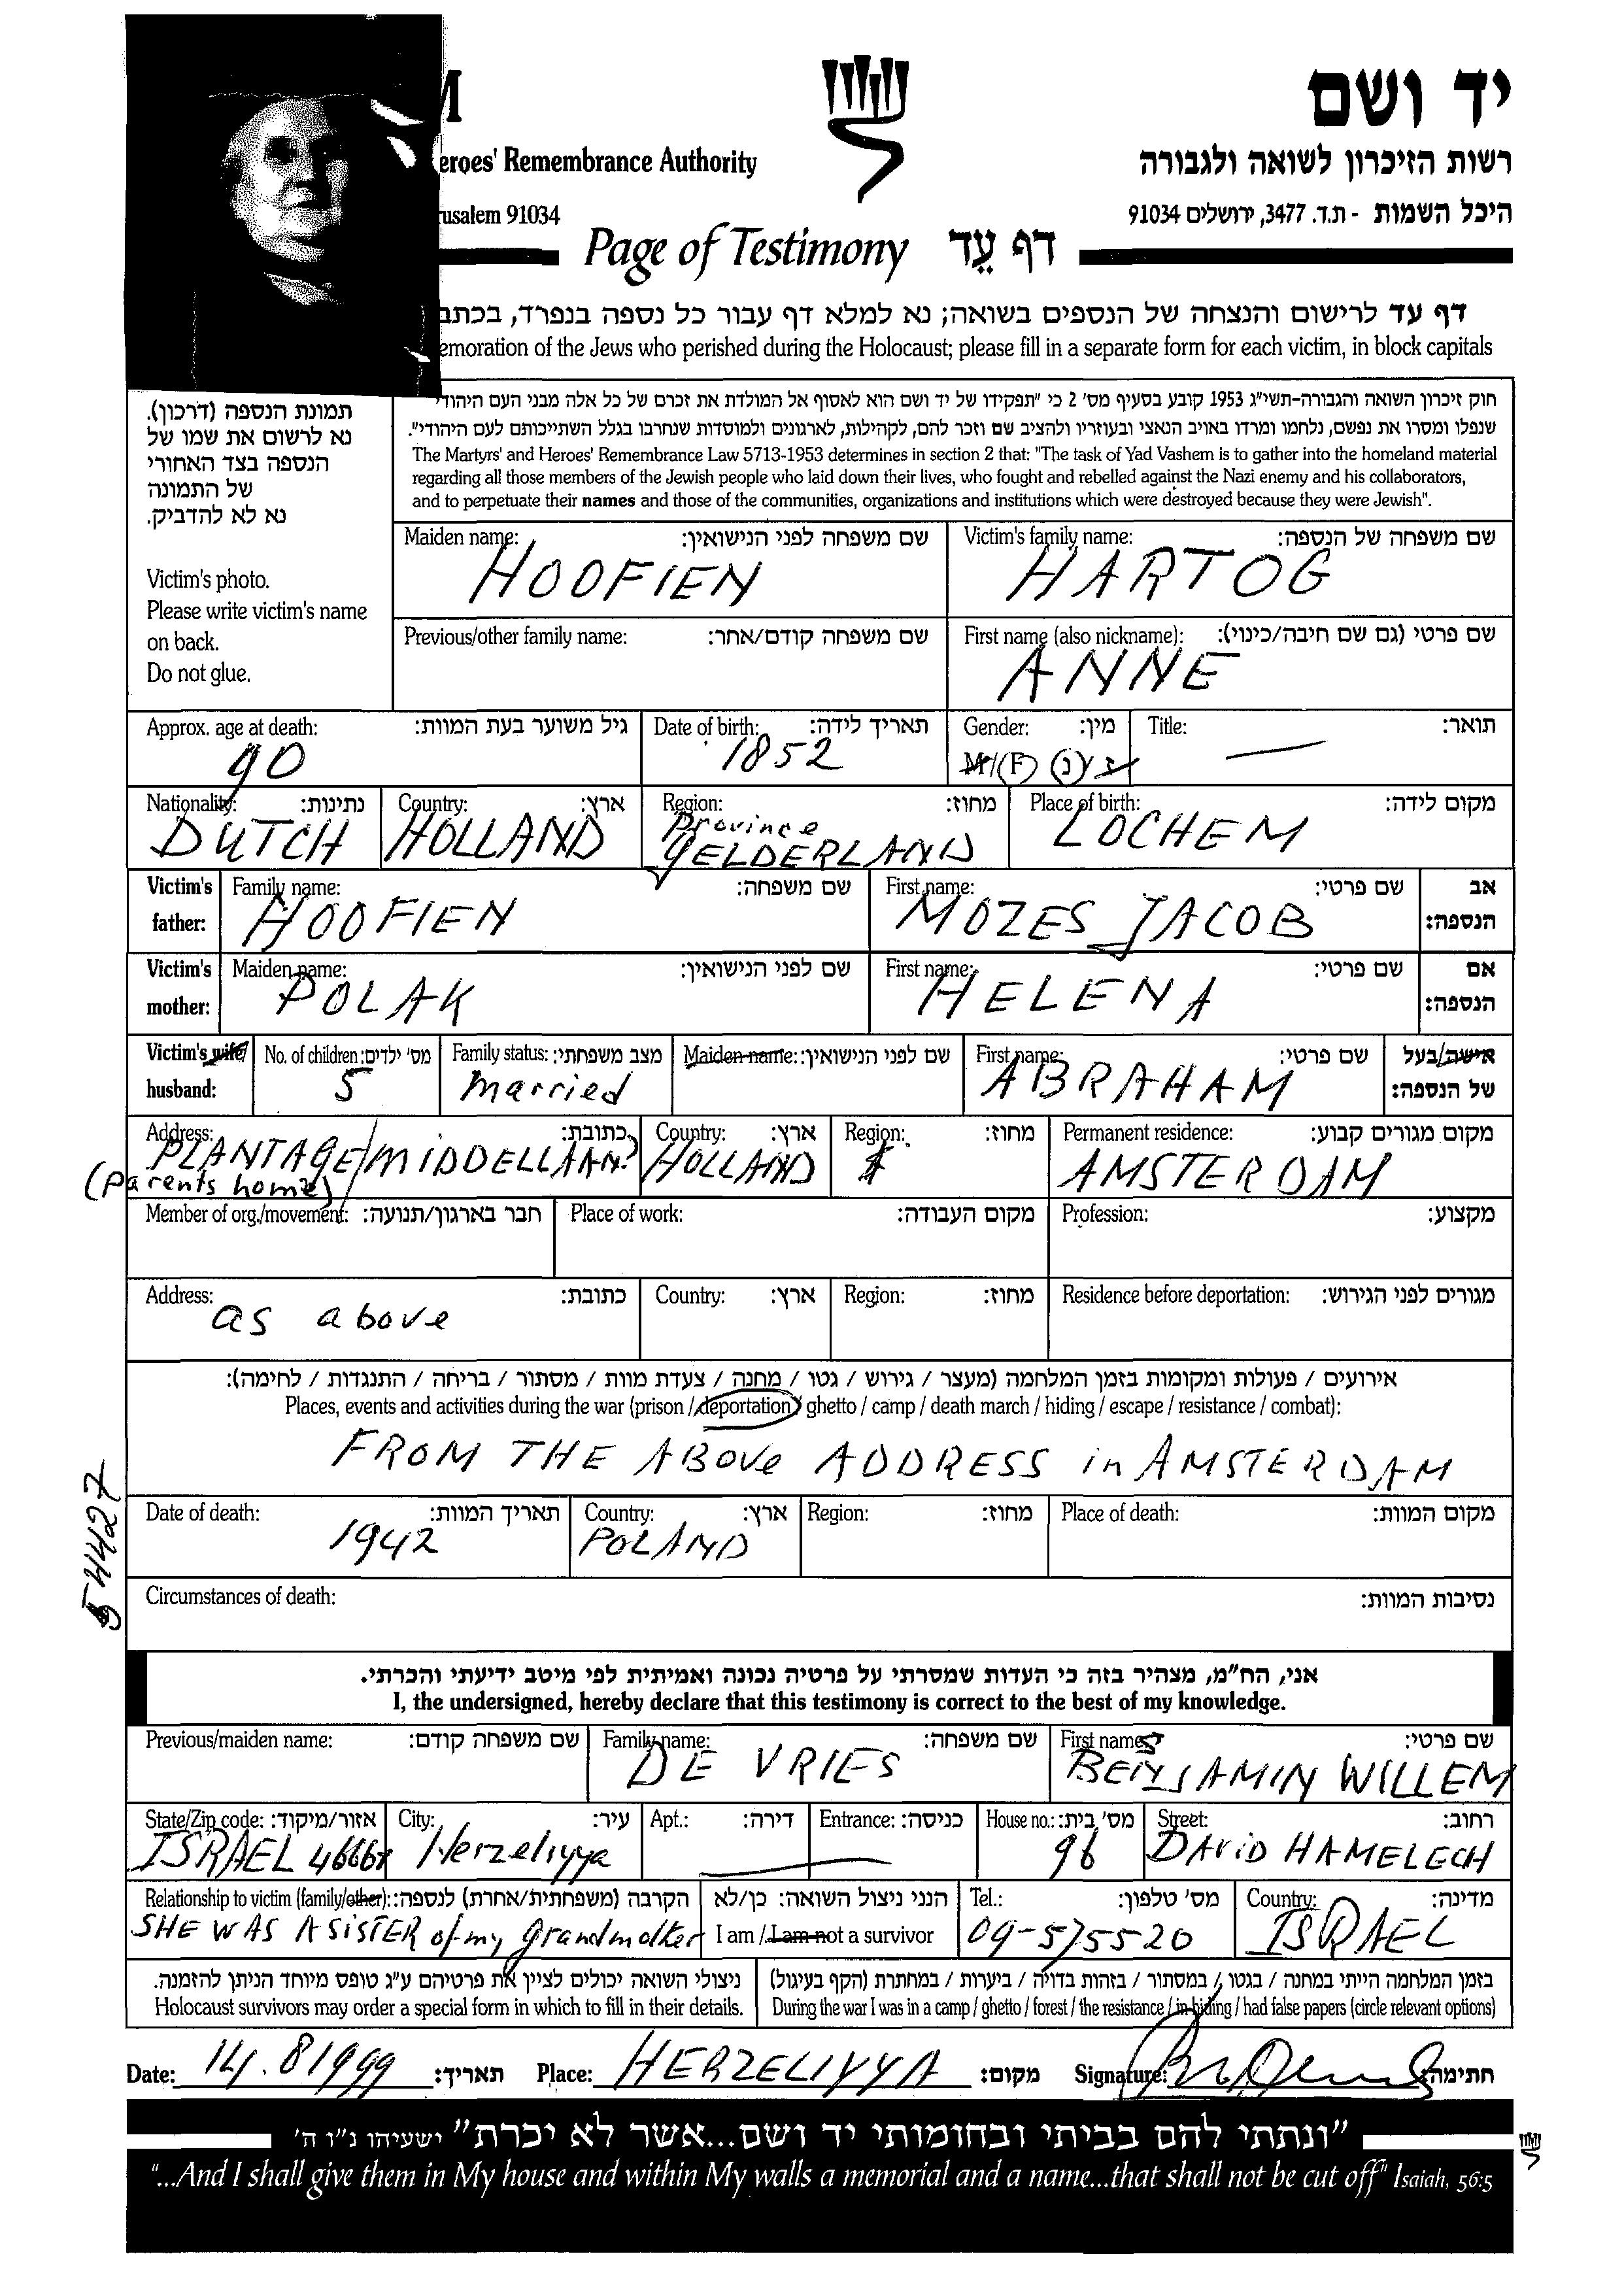 יד ושם
M
רשות הזיכרון לשואה ולגבורה
eroes' Remembrance Authority
היכל השמות - ת.ד. 3477, ירושלים 91034
rusalem 91034
Page of Testimony דף עֵד
דף עד לרישום והנצחה של הנספים בשואה; נא למלא דף עבור כל נספה בנפרד, בכתב
emoration of the Jews who perished during the Holocaust; please fill in a separate form for each victim, in block capitals
תמונת הנספה (דרכון).
נא לרשום את שמו של
הנספה בצד האחורי
של התמונה
נא לא להדביק.
Victim's photo.
Please write victim's name
on back.
Do not glue.
חוק זיכרון השואה והגבורה-תשי"ג 1953 קובע בסעיף מס' 2 כי "תפקידו של יד ושם הוא לאסוף אל המולדת את זכרם של כל אלה מבני העם היהודי
שנפלו ומסרו את נפשם, נלחמו ומרדו באויב הנאצי ובעוזריו ולהציב שם וזכר להם, לקהילות, לארגונים ולמוסדות שנחרבו בגלל השתייכותם לעם היהודי".
The Martyrs' and Heroes' Remembrance Law 5713-1953 determines in section 2 that: "The task of Yad Vashem is to gather into the homeland material
regarding all those members of the Jewish people who laid down their lives, who fought and rebelled against the Nazi enemy and his collaborators,
and to perpetuate their names and those of the communities, organizations and institutions which were destroyed because they were Jewish".
Maiden name: שם משפחה לפני הנישואין: Victim's family name: שם משפחה של הנספה:
HOOFIEN HARTOG
Previous/other family name: שם משפחה קודם/אחר: First name (also nickname): שם פרטי (גם שם חיבה/כינוי):
ANNE
Approx. age at death: גיל משוער בעת המוות: Date of birth: תאריך לידה: Gender: מין: Title: תואר:
90 1852 M/(F) (נ)/ז
Nationality: נתינות: Country: ארץ: Region: מחוז: Place of birth: מקום לידה:
DUTCH HOLLAND Province GELDERLAND LOCHEM
Victim's father: Family name: שם משפחה: First name: שם פרטי: אב הנספה:
HOOFIEN MOZES JACOB
Victim's mother: Maiden name: שם לפני הנישואין: First name: שם פרטי: אם הנספה:
POLAK HELENA
Victim's wife/ husband: No. of children: מס' ילדים: Family status: מצב משפחתי: Maiden name: שם לפני הנישואין: First name: שם פרטי: אישה/בעל של הנספה:
5 married ABRAHAM
Address: כתובת: Country: ארץ: Region: מחוז: Permanent residence: מקום מגורים קבוע:
PLANTAGE/MIDDELLAAN? HOLLAND AMSTERDAM
(parents home)
Member of org./movement: חבר בארגון/תנועה: Place of work: מקום העבודה: Profession: מקצוע:
Address: כתובת: Country: ארץ: Region: מחוז: Residence before deportation: מגורים לפני הגירוש:
as above
אירועים / פעולות ומקומות בזמן המלחמה (מעצר / גירוש / גטו / מחנה / צעדת מוות / מסתור / בריחה / התנגדות / לחימה):
Places, events and activities during the war (prison / deportation / ghetto / camp / death march / hiding / escape / resistance / combat):
FROM THE ABOVE ADDRESS in AMSTERDAM
Date of death: תאריך המוות: Country: ארץ: Region: מחוז: Place of death: מקום המוות:
1942 POLAND
54427
Circumstances of death: נסיבות המוות:
אני, הח"מ, מצהיר בזה כי העדות שמסרתי על פרטיה נכונה ואמיתית לפי מיטב ידיעתי והכרתי.
I, the undersigned, hereby declare that this testimony is correct to the best of my knowledge.
Previous/maiden name: שם משפחה קודם: Family name: שם משפחה: First names שם פרטי:
DE VRIES BENJAMIN WILLEM
State/Zip code: אזור/מיקוד: City: עיר: Apt.: דירה: Entrance: כניסה: House no.: מס' בית: Street: רחוב:
ISRAEL Herzeliyya 96 DAVID HAMELECH
Relationship to victim (family/other): הקרבה (משפחתית/אחרת) לנספה: הנני ניצול השואה: כן/לא Tel.: מס' טלפון: Country: מדינה:
SHE WAS A SISTER of my grandmother I am / I am not a survivor 09-575520 ISRAEL
ניצולי השואה יכולים לציין את פרטיהם ע"ג טופס מיוחד הניתן להזמנה. בזמן המלחמה הייתי במחנה / בגטו / במסתור / בזהות בדויה / ביערות / במחתרת (הקף בעיגול)
Holocaust survivors may order a special form in which to fill in their details. During the war I was in a camp / ghetto / forest / the resistance / in hiding / had false papers (circle relevant options)
Date: 14.8 1999 תאריך: Place: HERZELIYYA מקום: Signature: חתימה:
"ונתתי להם בביתי ובחומותי יד ושם...אשר לא יכרת" ישעיהו נ"ו ה'
"...And I shall give them in My house and within My walls a memorial and a name...that shall not be cut off" Isaiah, 56:5